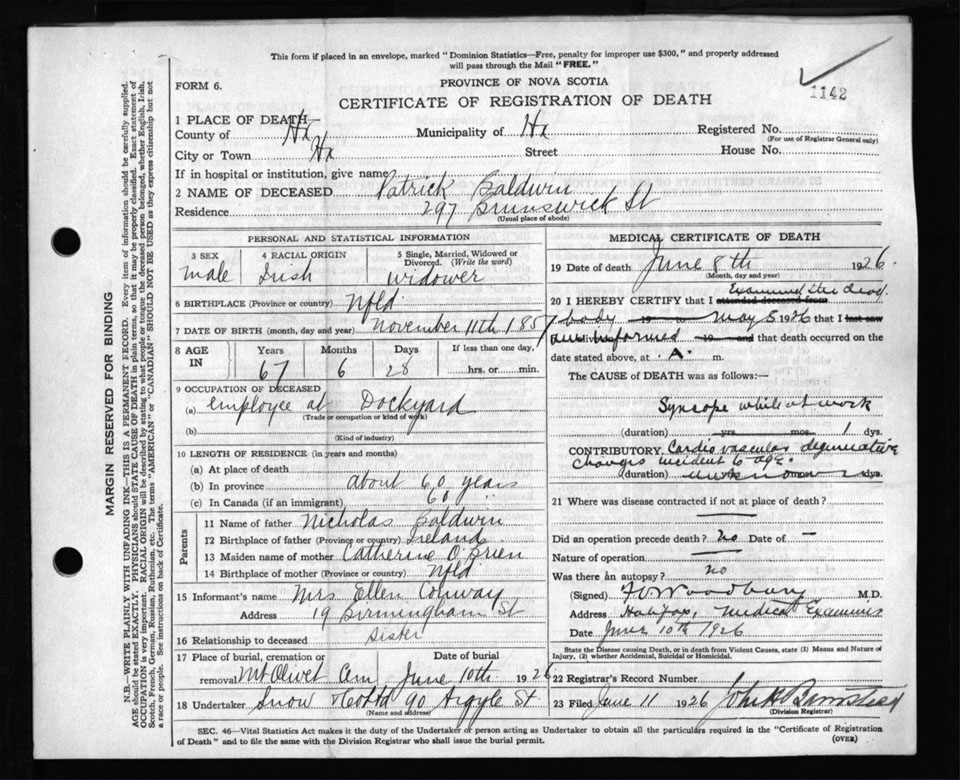 This form if placed in an envelope, marked "Dominion Statistics—Free, penalty for improper use $300," and properly addressed
will pass through the Mail "FREE."
PROVINCE OF NOVA SCOTIA
FORM 6.
CERTIFICATE OF REGISTRATION OF DEATH
1142
1 PLACE OF DEATH
County of Hx Municipality of Hx Registered No.
(For use of Registrar General only)
City or Town Hx Street House No.
If in hospital or institution, give name
2 NAME OF DECEASED Patrick Baldwin
Residence 297 Brunswick St
(Usual place of abode)
PERSONAL AND STATISTICAL INFORMATION
3 SEX 4 RACIAL ORIGIN 5 Single, Married, Widowed or Divorced. (Write the word)
male Irish widower
6 BIRTHPLACE (Province or country) Nfld
7 DATE OF BIRTH (month, day and year) November 11th 1857
8 AGE IN Years Months Days If less than one day,
67 6 28 hrs. or min.
9 OCCUPATION OF DECEASED
(a) employee at Dockyard
(Trade or occupation or kind of work)
(b)
(Kind of industry)
10 LENGTH OF RESIDENCE (in years and months)
(a) At place of death
(b) In province about 60 years
(c) In Canada (if an immigrant) 60 "
Parents
11 Name of father Nicholas Baldwin
12 Birthplace of father (Province or country) Ireland
13 Maiden name of mother Catherine O'Brien
14 Birthplace of mother (Province or country) Nfld
15 Informant's name Mrs Ellen Conway
Address 19 Birmingham St
16 Relationship to deceased sister
17 Place of burial, cremation or removal Mt Olivet Cem Date of burial June 10th 1926
18 Undertaker Snow 90 Argyle St
(Name and address)
MEDICAL CERTIFICATE OF DEATH
19 Date of death June 8th 1926
(Month, day and year)
20 I HEREBY CERTIFY that I attended deceased from Examined the dead
body 19 to May 8 1926 that I last saw
am informed 19 and that death occurred on the
date stated above, at A. m.
The CAUSE of DEATH was as follows:—
Syncope while at work
(duration) yrs. mos. 1 dys.
CONTRIBUTORY Cardio vascular degenerative
changes incident to age.
(duration) unknown dys.
21 Where was disease contracted if not at place of death?
Did an operation precede death? no Date of —
Nature of operation
Was there an autopsy? no
(Signed) Woodbury M.D.
Address Halifax, Medical Examiner
Date June 10th 1926
State the Disease causing Death, or in death from Violent Causes, state (1) Means and Nature of
Injury, (2) whether Accidental, Suicidal or Homicidal.
22 Registrar's Record Number
23 Filed June 11 1926 John H Barnstead
(Division Registrar)
SEC. 46—Vital Statistics Act makes it the duty of the Undertaker or person acting as Undertaker to obtain all the particulars required in the "Certificate of Registration
of Death" and to file the same with the Division Registrar who shall issue the burial permit. (OVER)
MARGIN RESERVED FOR BINDING
N.B.—WRITE PLAINLY WITH UNFADING INK—THIS IS A PERMANENT RECORD. Every item of information should be carefully supplied.
AGE should be stated EXACTLY. PHYSICIANS should STATE CAUSE OF DEATH in plain terms, so that it may be properly classified. Exact statement of
OCCUPATION is very important. RACIAL ORIGIN will be described by stating to what people or tongue the deceased person belonged, whether English, Irish,
Scotch, French, German, Russian, Ruthenian, etc. The terms "AMERICAN" or "CANADIAN" SHOULD NOT BE USED as they express citizenship but not
a race or people. See instructions on back of Certificate.